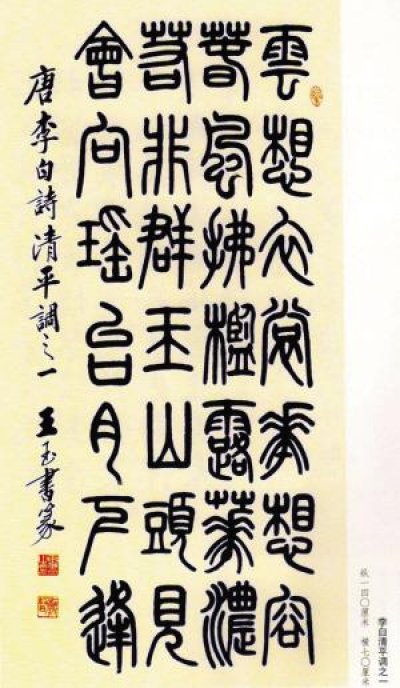 雲想衣裳花想容
春風拂檻露華濃
若非群玉山頭見
會向瑤台月下逢
唐李白詩清平調之一 王玉書篆
李白清平调之一
纵一四〇厘米 横七〇厘米